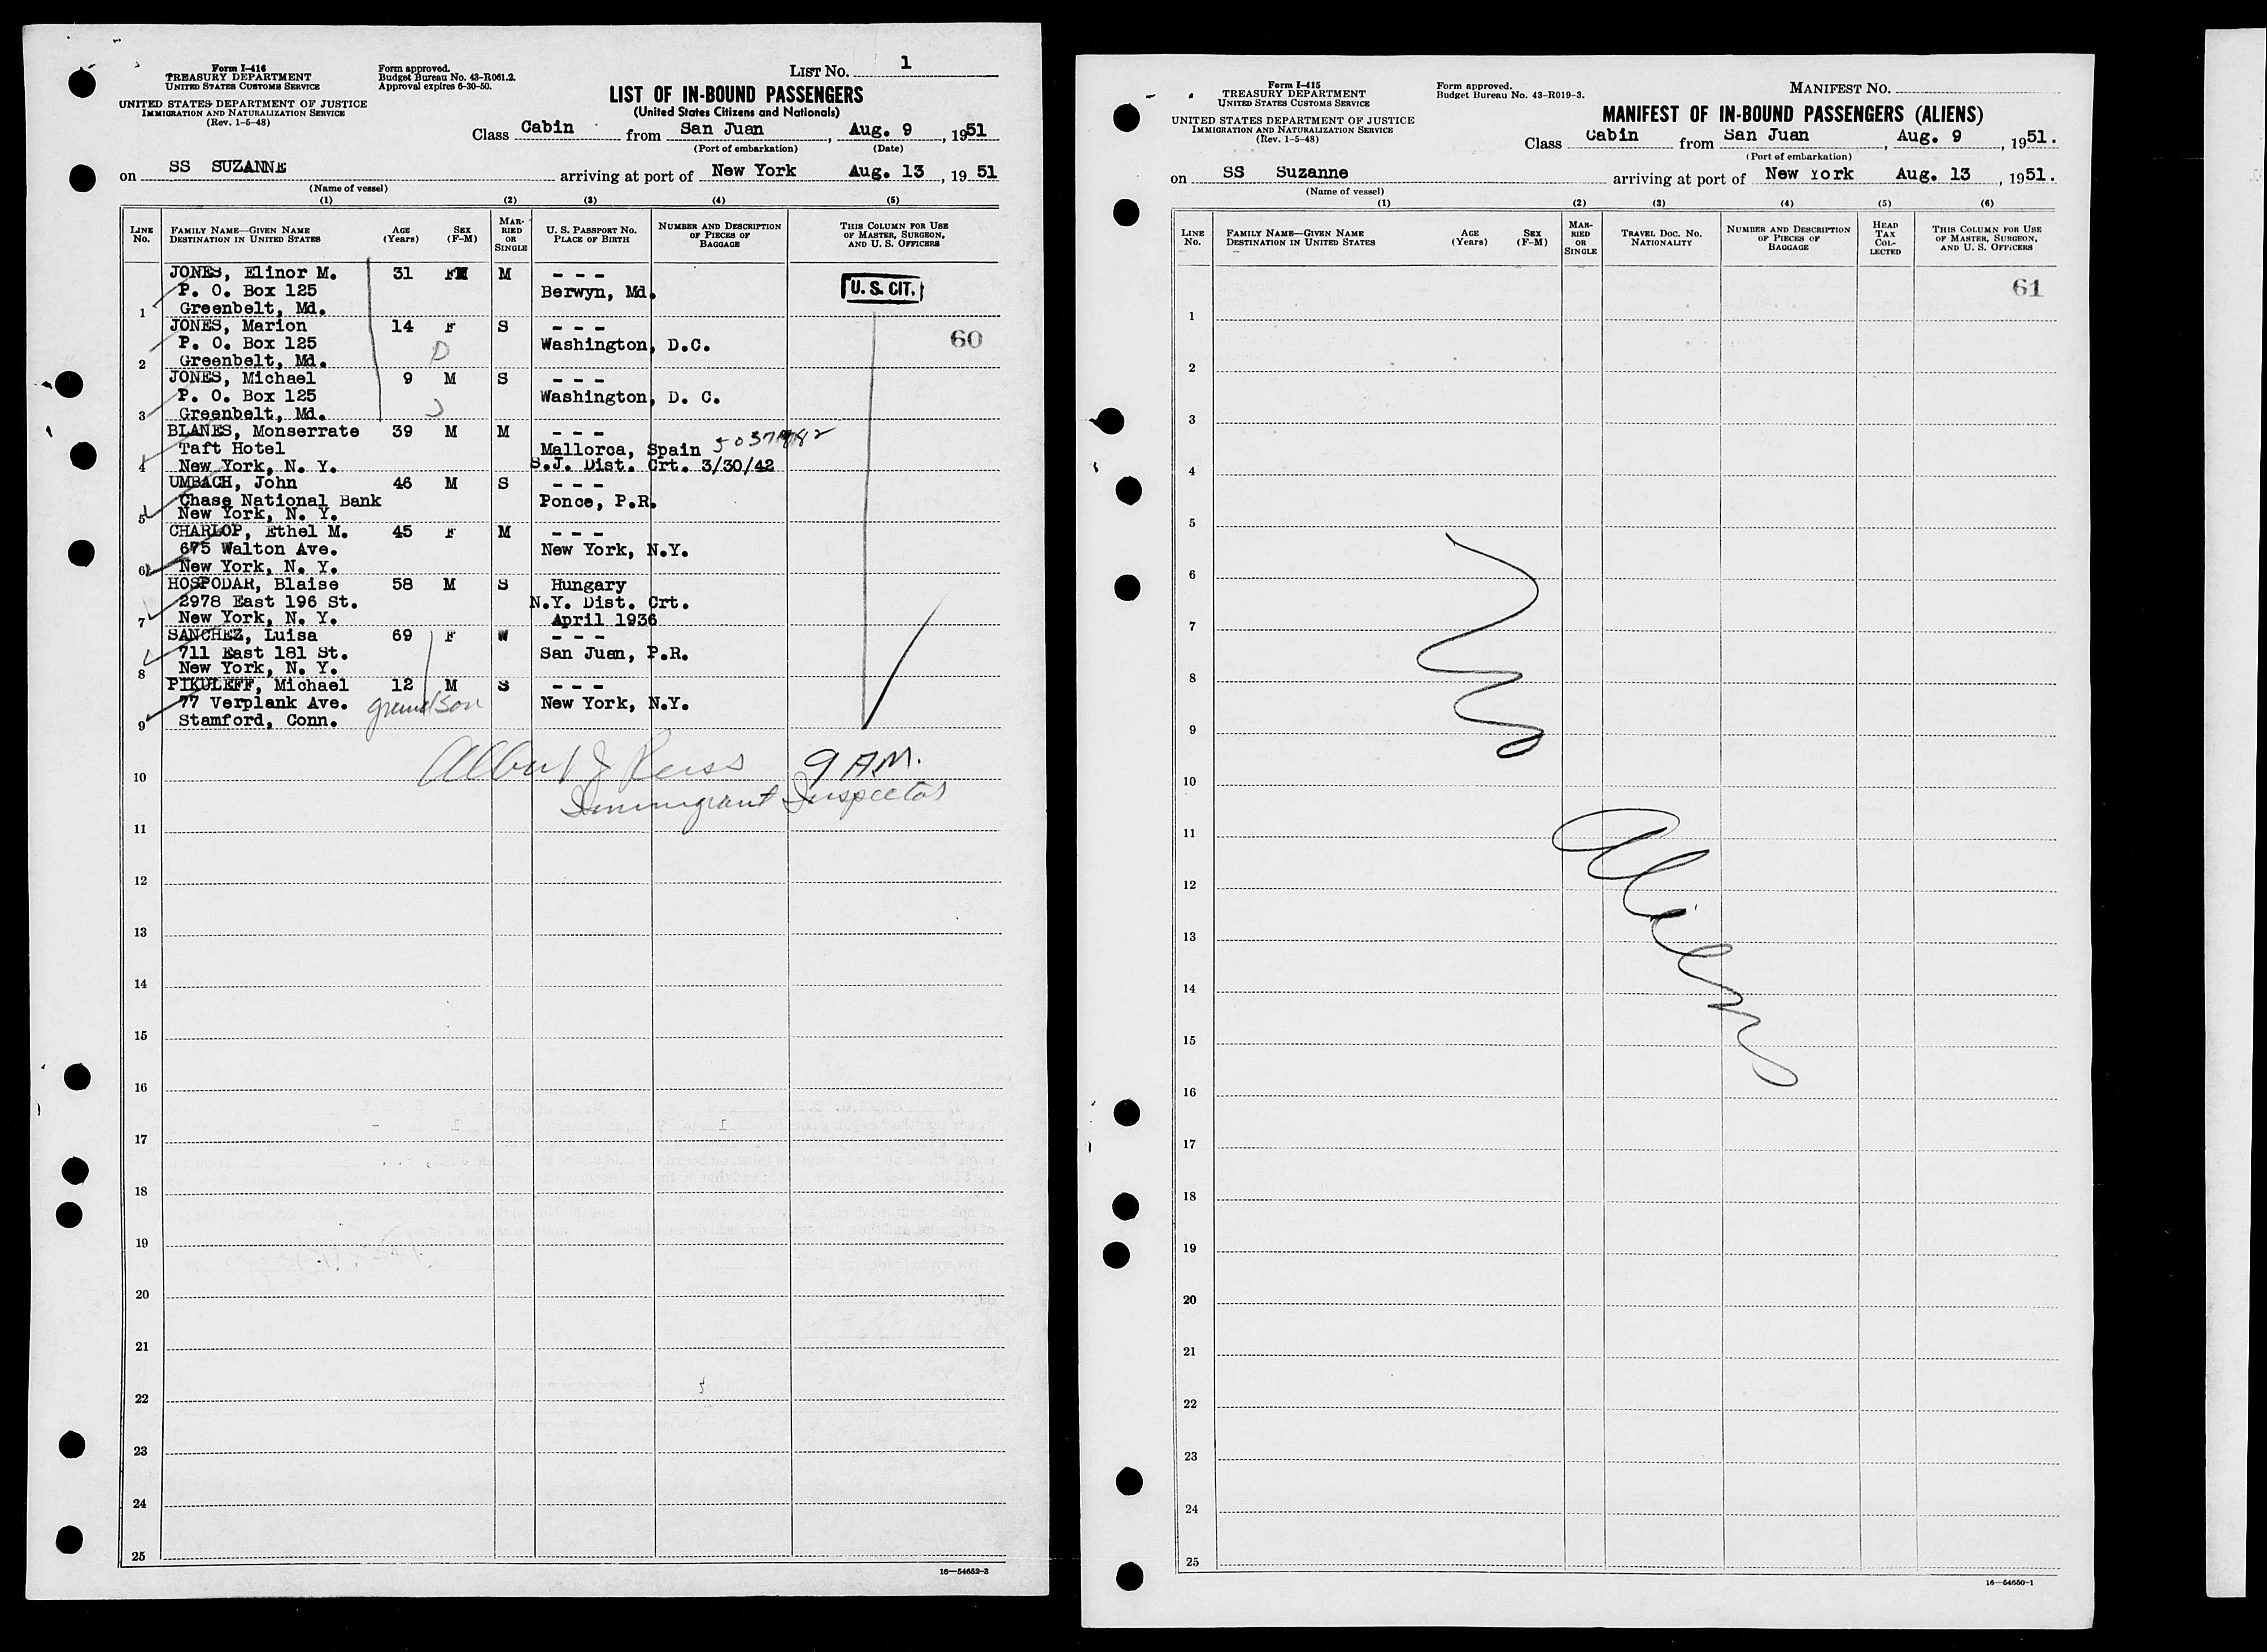 Form I-416
TREASURY DEPARTMENT
UNITED STATES CUSTOMS SERVICE
UNITED STATES DEPARTMENT OF JUSTICE
IMMIGRATION AND NATURALIZATION SERVICE
(Rev. 1-5-48)
Form approved.
Budget Bureau No. 43-R061.2.
Approval expires 6-30-50.
LIST NO. 1
LIST OF IN-BOUND PASSENGERS
(United States Citizens and Nationals)
Class Cabin from San Juan, Aug. 9, 1951
(Port of embarkation) (Date)
on SS SUZANNE arriving at port of New York Aug. 13, 1951
(Name of vessel)
(1) (2) (3) (4) (5)
LINE NO. FAMILY NAME—GIVEN NAME DESTINATION IN UNITED STATES AGE (Years) SEX (F-M) MARRIED OR SINGLE U. S. PASSPORT NO. PLACE OF BIRTH NUMBER AND DESCRIPTION OF PIECES OF BAGGAGE THIS COLUMN FOR USE OF MASTER, SURGEON, AND U. S. OFFICERS
JONES, Elinor M. 31 F M - - -
P. O. Box 125 Berwyn, Md. U. S. CIT.
1 Greenbelt, Md.
JONES, Marion 14 F S - - - 60
P. O. Box 125 D Washington, D.C.
2 Greenbelt, Md.
JONES, Michael 9 M S - - -
P. O. Box 125 Washington, D. C.
3 Greenbelt, Md.
BLANES, Monserrate 39 M M - - -
Taft Hotel Mallorca, Spain
4 New York, N. Y. S.J. Dist. Crt. 3/30/42
UMBACH, John 46 M S - - -
Chase National Bank Ponce, P.R.
5 New York, N. Y.
CHARLOP, Ethel M. 45 F M - - -
675 Walton Ave. New York, N.Y.
6 New York, N. Y.
HOSPODAR, Blaise 58 M S Hungary
2978 East 196 St. N.Y. Dist. Crt.
7 New York, N. Y. April 1936
SANCHEZ, Luisa 69 F W - - -
711 East 181 St. San Juan, P.R.
8 New York, N. Y.
PIKULEFF, Michael 12 M S - - -
77 Verplank Ave. grandson New York, N.Y.
9 Stamford, Conn.
Albert J Reiss 9 AM.
10
Immigrant Inspector
11
12
13
14
15
16
17
18
19
20
21
22
23
24
25
16—54652-3
Form I-415
TREASURY DEPARTMENT
UNITED STATES CUSTOMS SERVICE
UNITED STATES DEPARTMENT OF JUSTICE
IMMIGRATION AND NATURALIZATION SERVICE
(Rev. 1-5-48)
Form approved.
Budget Bureau No. 43-R019-3.
MANIFEST NO.
MANIFEST OF IN-BOUND PASSENGERS (ALIENS)
Class Cabin from San Juan, Aug. 9, 1951.
(Port of embarkation)
on SS Suzanne arriving at port of New York Aug. 13, 1951.
(Name of vessel)
(1) (2) (3) (4) (5) (6)
LINE NO. FAMILY NAME—GIVEN NAME DESTINATION IN UNITED STATES AGE (Years) SEX (F-M) MARRIED OR SINGLE TRAVEL DOC. NO. NATIONALITY NUMBER AND DESCRIPTION OF PIECES OF BAGGAGE HEAD TAX COLLECTED THIS COLUMN FOR USE OF MASTER, SURGEON, AND U. S. OFFICERS
61
1
2
3
4
5
6
7
8
9
10
11
12
13
14
15
16
17
18
19
20
21
22
23
24
25
No
Aliens
16—54650-1